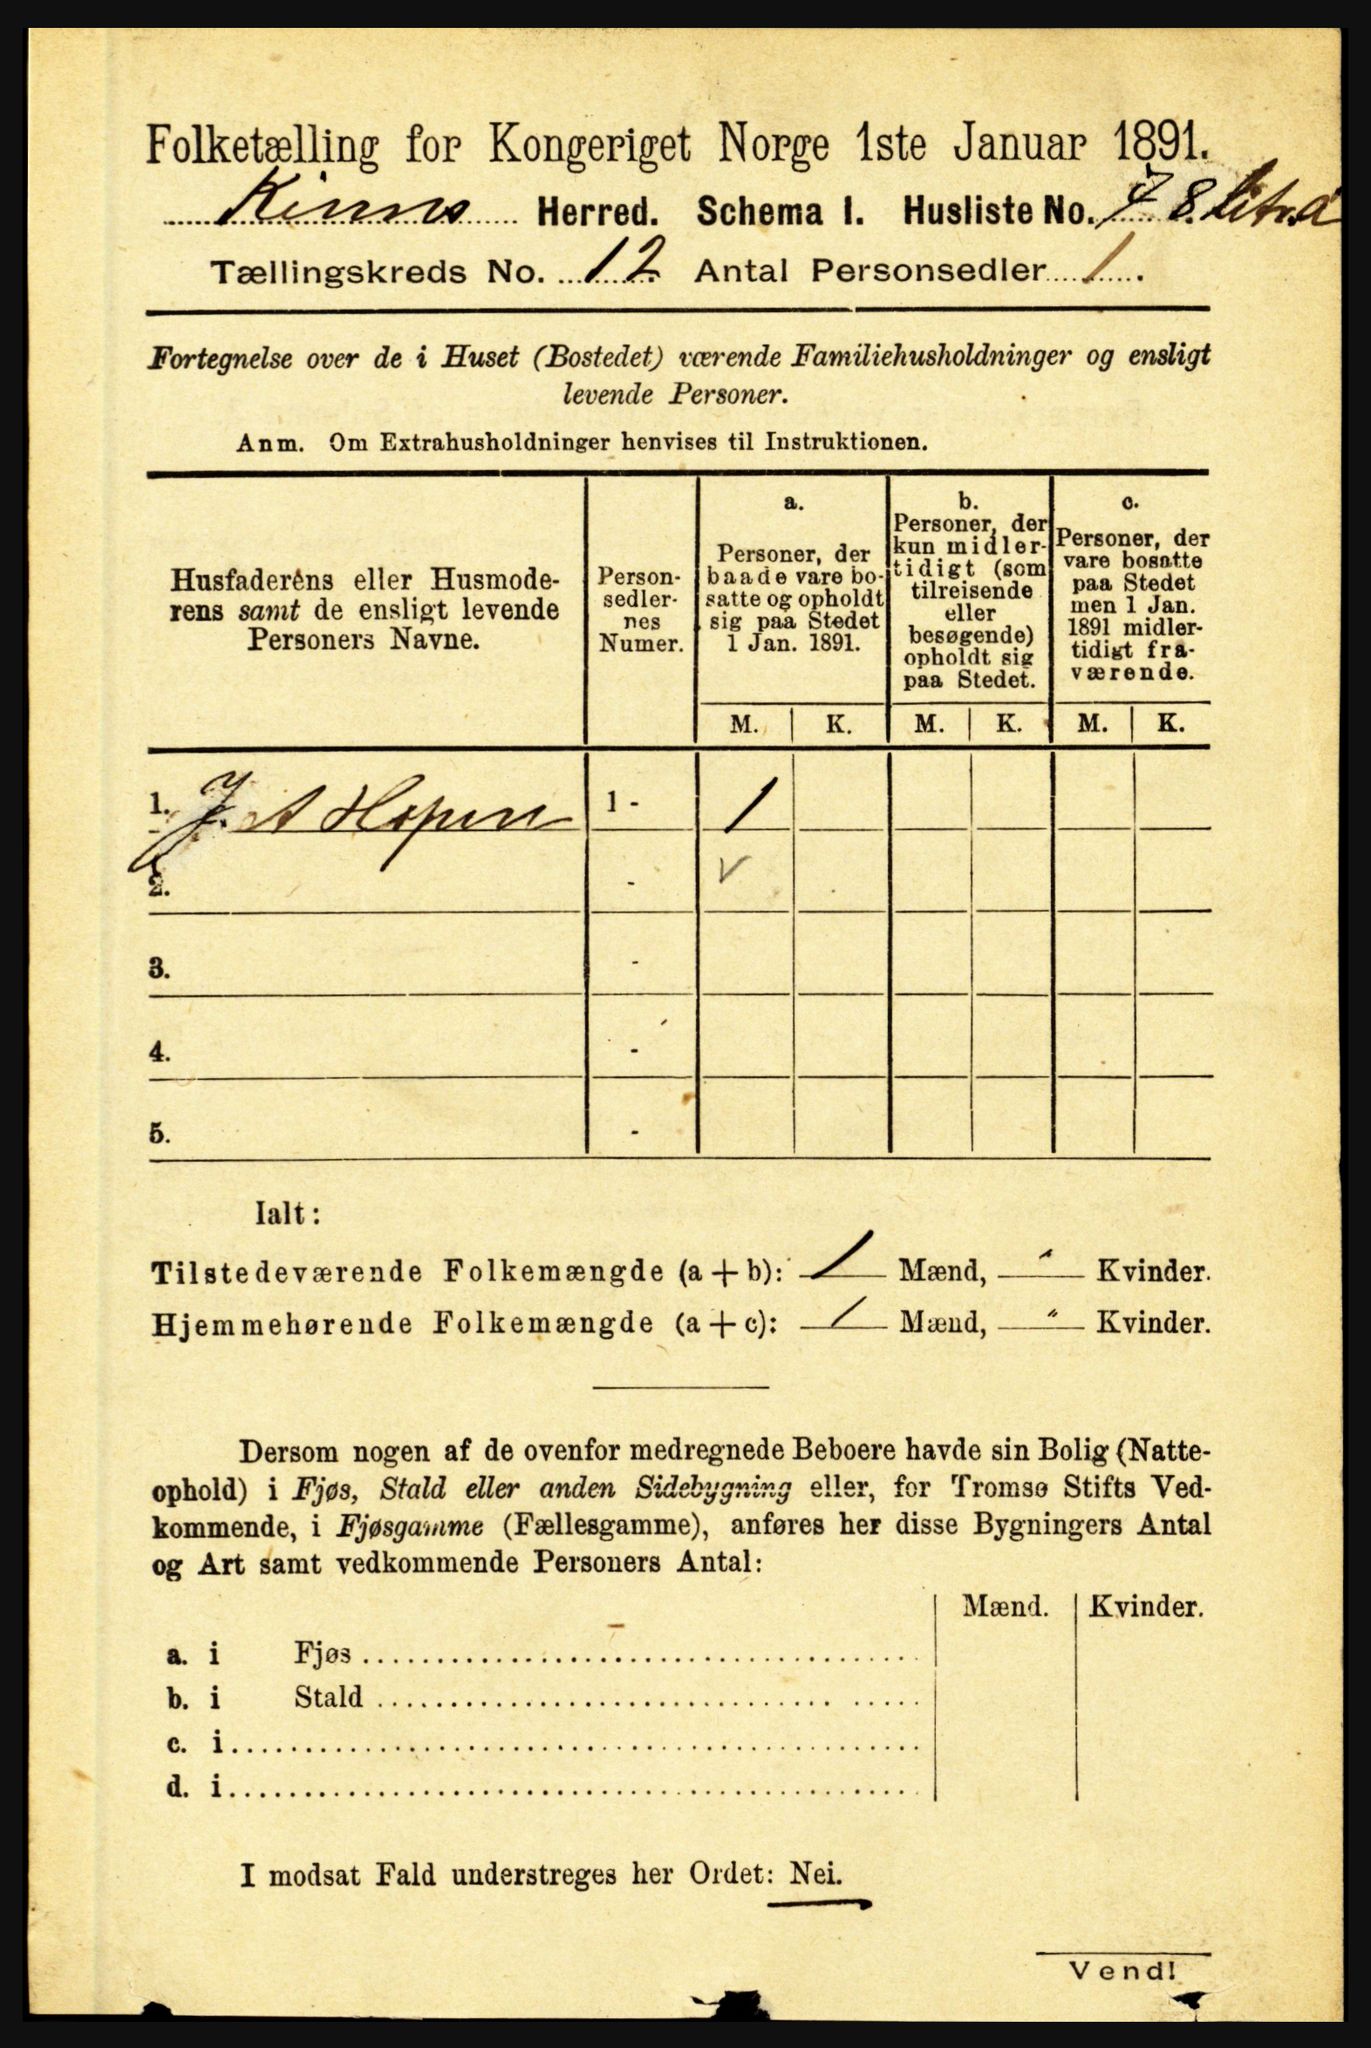 Folketælling for Kongeriget Norge 1ste Januar 1891.
Kinns Herred. Schema I. Husliste No. 78 litr. a
Tællingskreds No. 12. Antal Personsedler 1.
Fortegnelse over de i Huset (Bostedet) værende Familiehusholdninger og ensligt
levende Personer.
Anm. Om Extrahusholdninger henvises til Instruktionen.
Husfaderens eller Husmode-
rens samt de ensligt levende
Personers Navne.
Person-
sedler-
nes
Numer.
a.
Personer, der
baade vare bo-
satte og opholdt
sig paa Stedet
1 Jan. 1891.
b.
Personer, der
kun midler-
tidigt (som
tilreisende
eller
besøgende)
opholdt sig
paa Stedet.
c.
Personer, der
vare bosatte
paa Stedet
men 1 Jan.
1891 midler-
tidigt fra-
værende.
M. K. M. K. M. K.
1. J. A Hopen 1 - 1
2. - v
3. -
4. -
5. -
Ialt:
Tilstedeværende Folkemængde (a + b): 1 Mænd, " Kvinder.
Hjemmehørende Folkemængde (a + c): 1 Mænd, " Kvinder.
Dersom nogen af de ovenfor medregnede Beboere havde sin Bolig (Natte-
ophold) i Fjøs, Stald eller anden Sidebygning eller, for Tromsø Stifts Ved-
kommende, i Fjøsgamme (Fællesgamme), anføres her disse Bygningers Antal
og Art samt vedkommende Personers Antal:
Mænd. Kvinder.
a. i Fjøs
b. i Stald
c. i
d. i
I modsat Fald understreges her Ordet: Nei.
Vend!